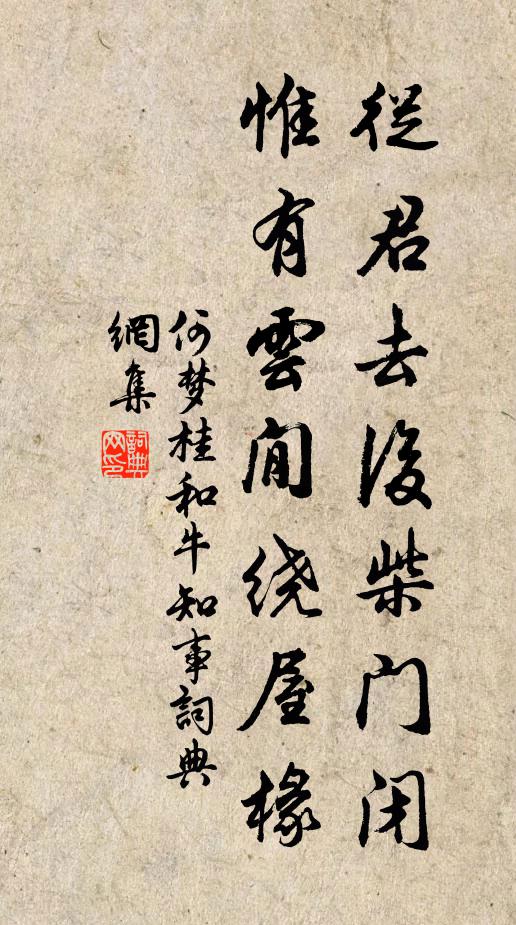 從君去後柴門闭
惟有雲間绕屋椽
何梦桂和牛知事詞典
網集
詞典网印